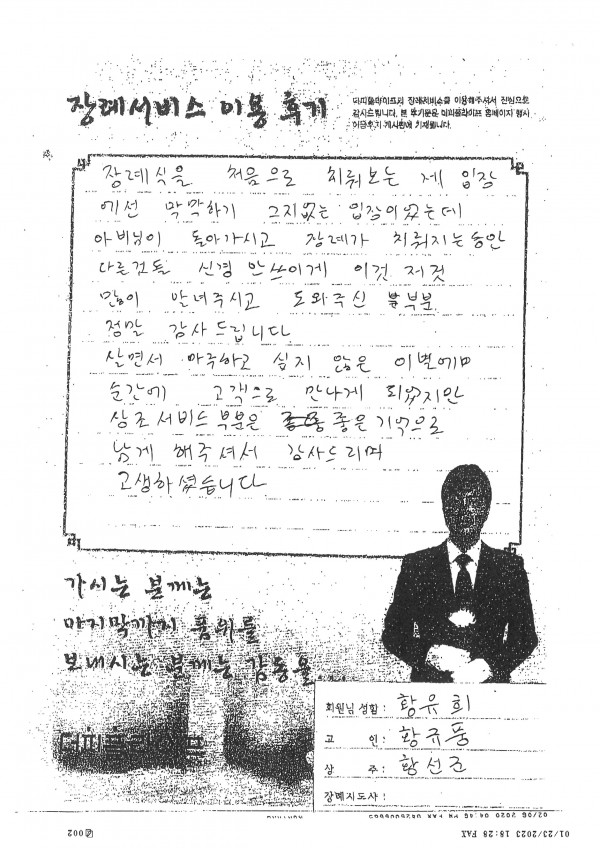 장례서비스 이용 후기
더피플라이프의 장례서비스를 이용해주셔서 진심으로
감사드립니다. 본 후기문은 더피플라이프 홈페이지 행사
이용후기 게시판에 기재됩니다.
장례식을 처음으로 치뤄보는 제 입장
에선 막막하기 그지없는 입장이었는데
아버님이 돌아가시고 장례가 치뤄지는동안
다른건들 신경 안쓰이게 이것 저것
많이 알녀주시고 도와주신 부분
정말 감사드립니다
살면서 마주하고 싶지 않은 이별에
순간에 고객으로 만나게 되었지만
상조서비드 부분은 좋은기억으로
남게 해주셔서 감사드리며
고생하셨습니다
가시는 분께는
마지막까지 품위를
보내시는 분께는 감동을
더피플라이프
회원님 성함 : 황유희
고 인 : 황규풍
상 주 : 황선준
장례지도사 :
01/23/2023 18:28 FAX
002